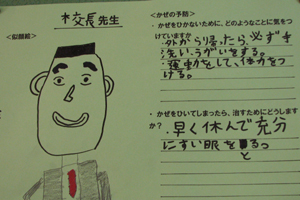 校長先生
<似顔絵>
<かぜの予防>
・かぜをひかないために、どのようなことに気をつ
けていますか
・外から帰ったら、必ず手
洗い、うがいをする。
・運動をして、体力をつ
ける。
・かぜをひいてしまったら、治すためにどうします
か?
・早く休んで充分
にすい眠をとるっ